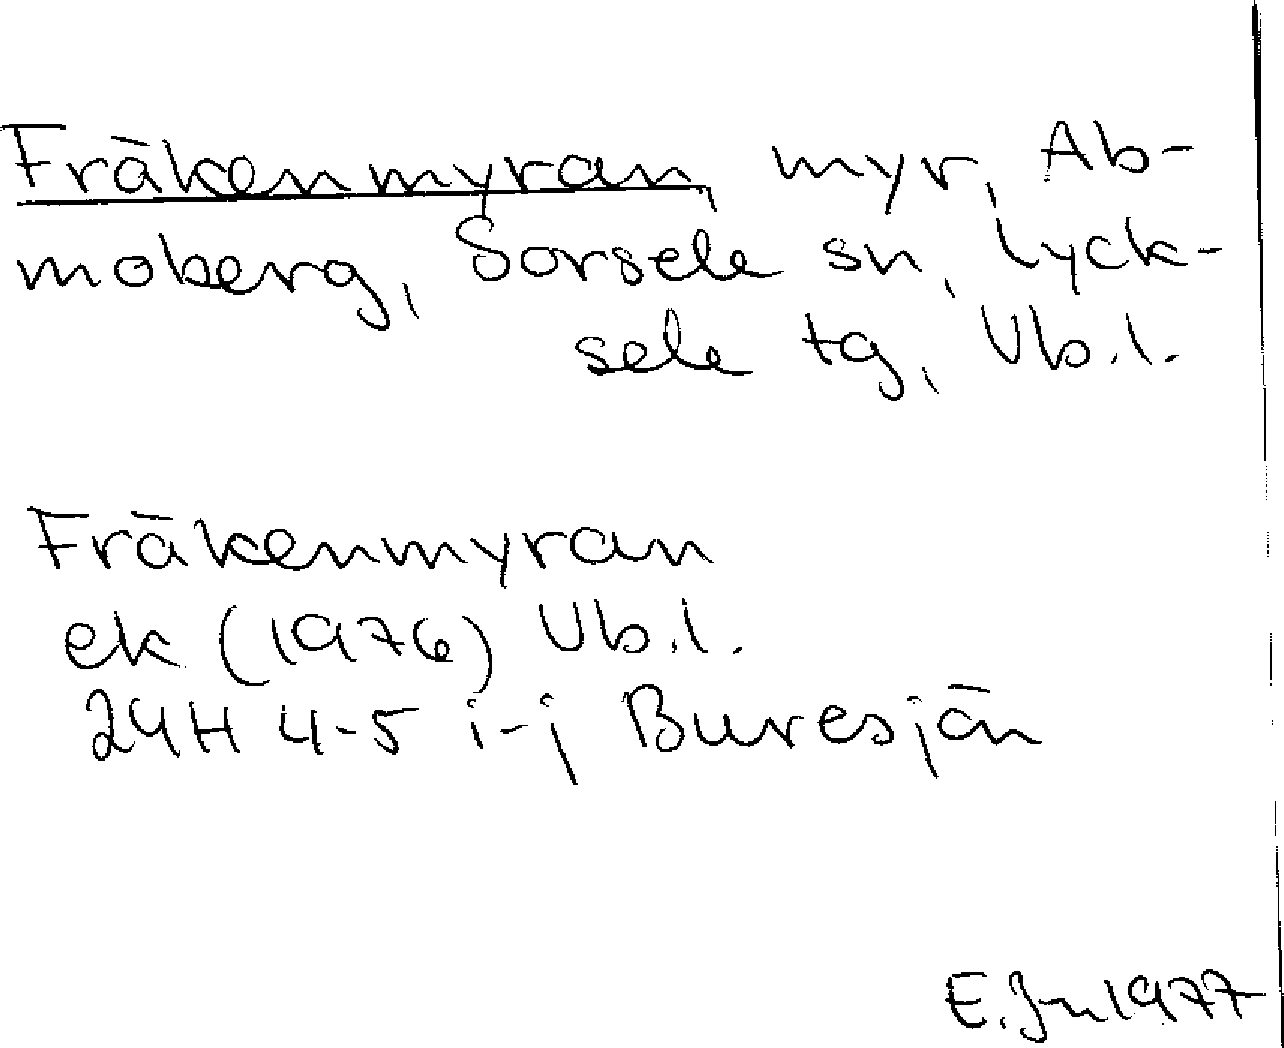 Fräkenmyran, myr, Ab-
moberg, Sorsele sn, Lyck-
sele tg, Vb.l.
Fräkenmyran
ek (1976) Vb.l.
24H 4-5 i-j Buresjön
E.Jn 1977